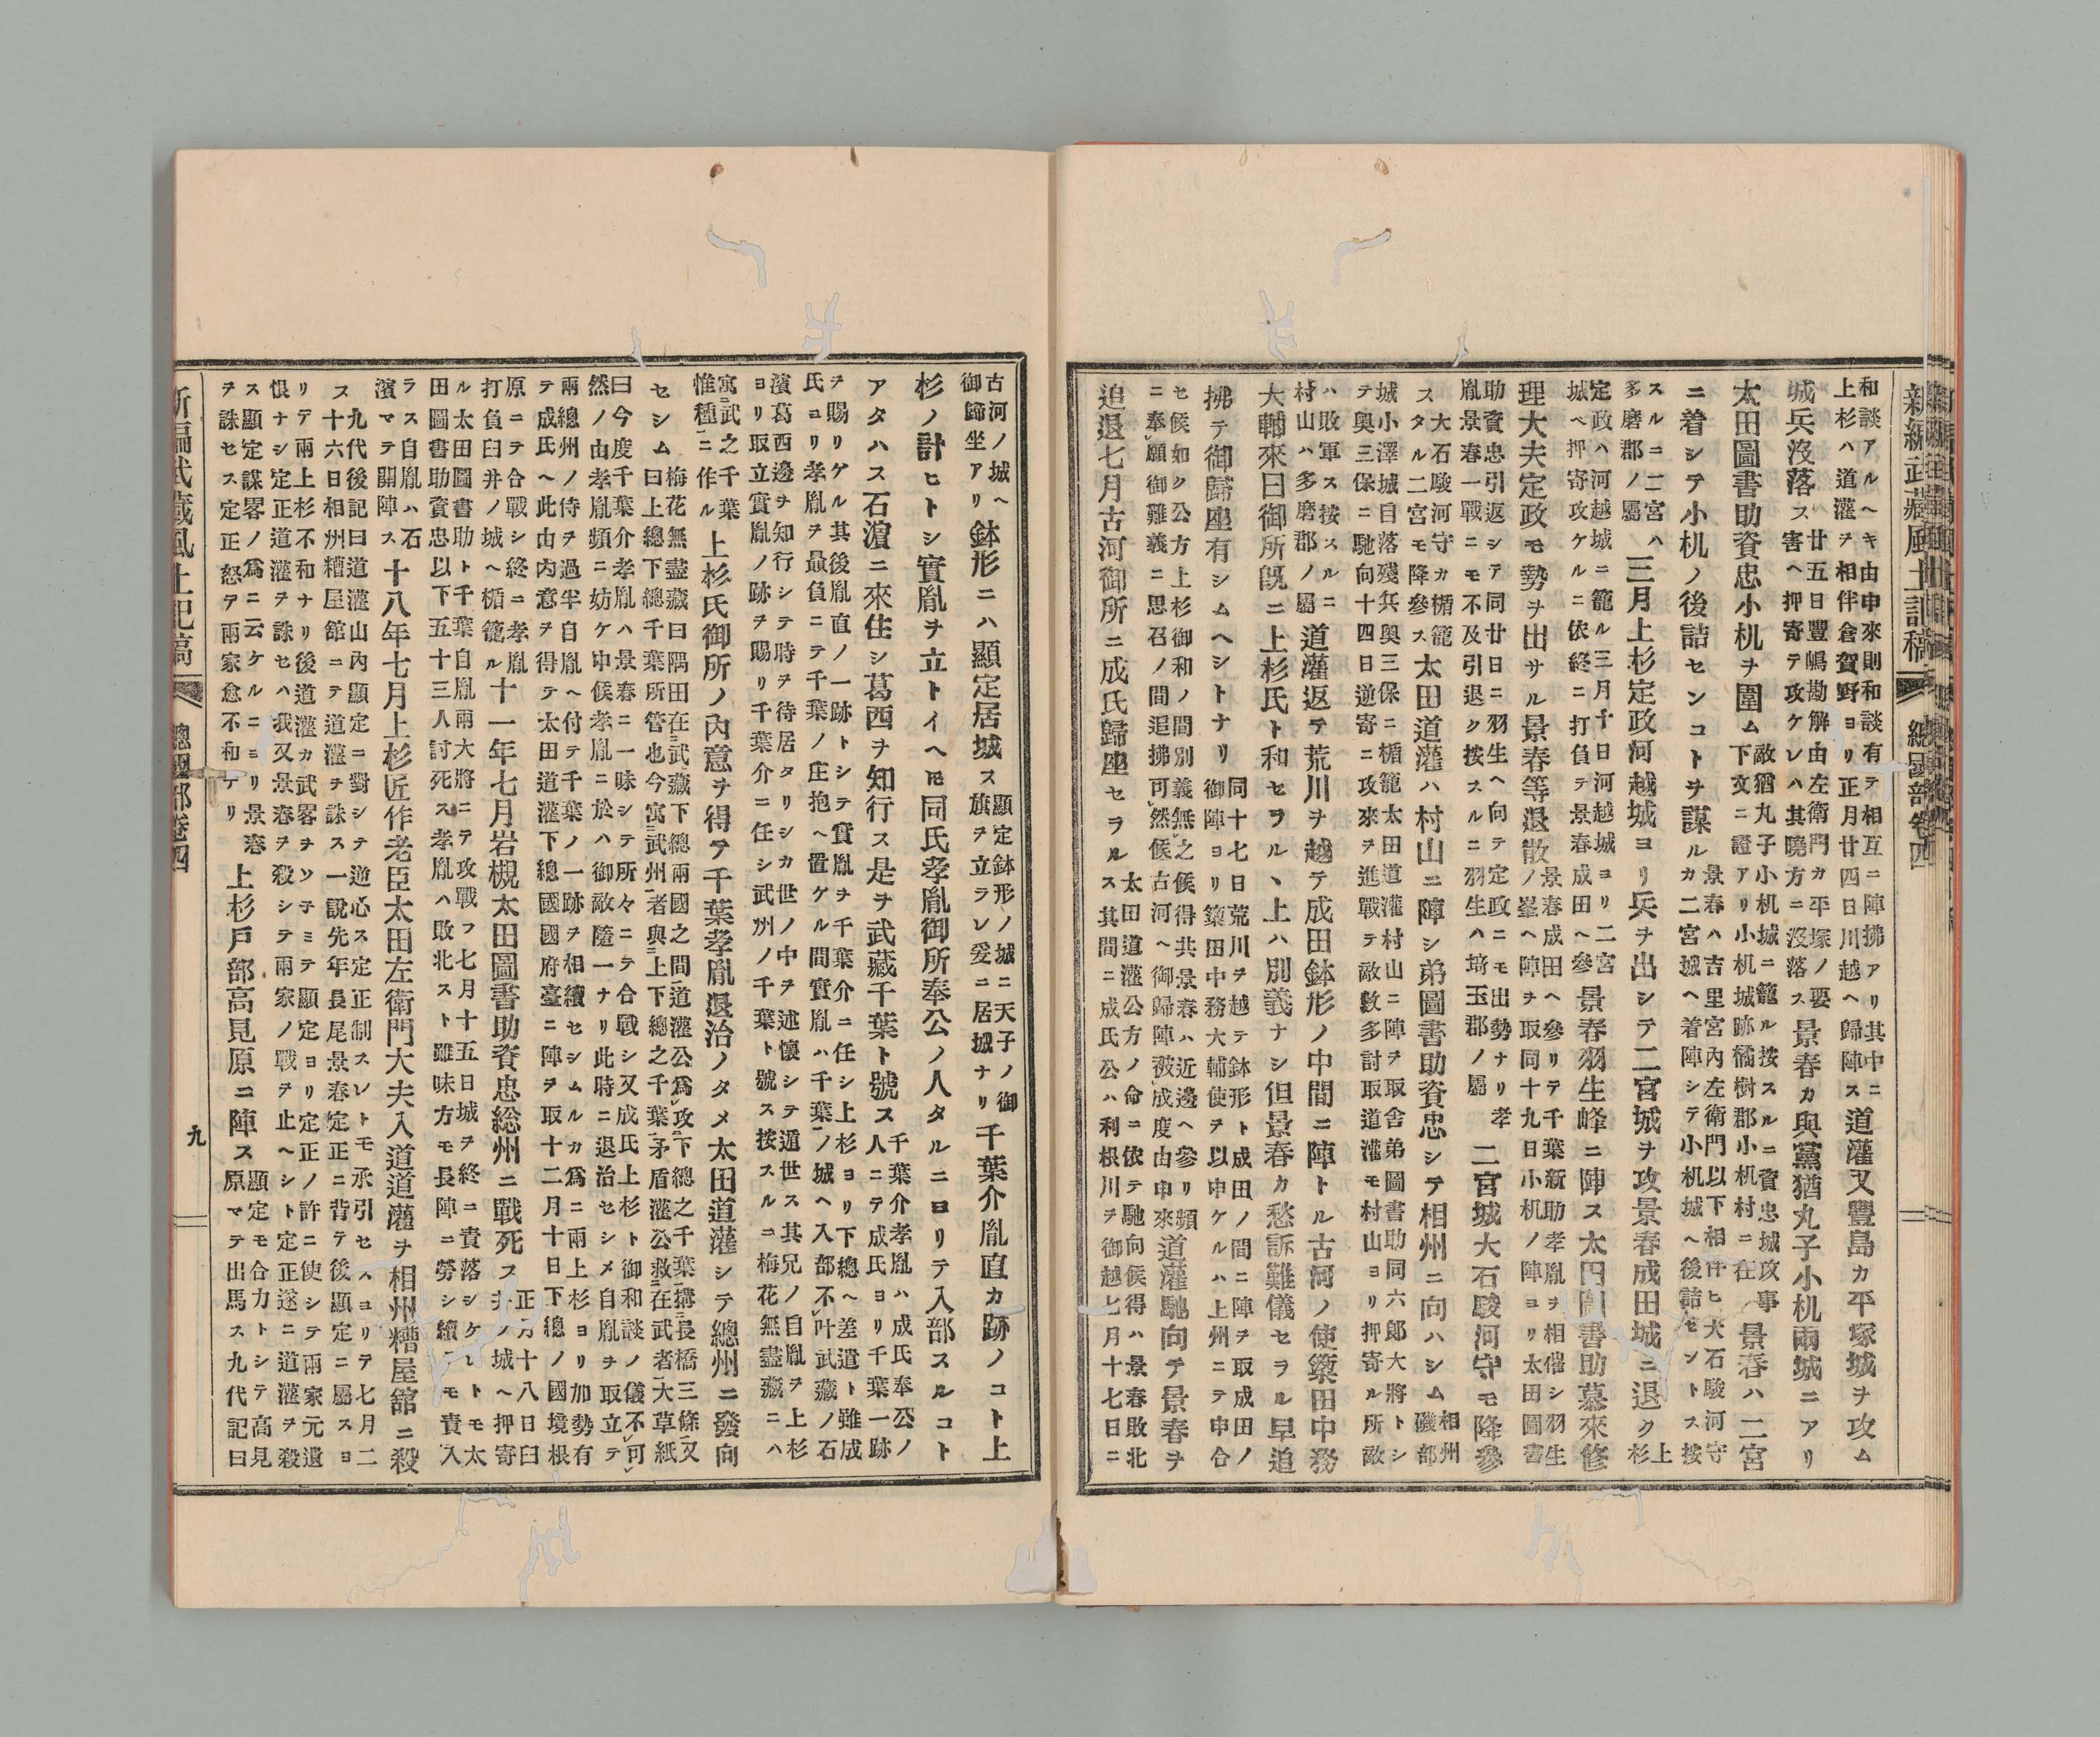 新編武藏風土記稿 總國部卷四
和談アルヘキ由申來則和談有テ相互ニ陣拂アリ其中ニ
上杉ハ道灌ヲ相伴倉賀野ヨリ正月廿四日川越ヘ歸陣ス
道灌又豐島カ平塚城ヲ攻ム
城兵沒落ス
廿五日豐嶋勘解由左衛門カ平塚ノ要
害ヘ押寄テ攻ケレハ其曉方ニ沒落ス
景春カ與黨猶丸子小机兩城ニアリ
太田圖書助資忠小机ヲ圍ム
敵猶丸子小机城ニ籠ル按スルニ資忠城攻事
下文ニ證アリ小机城跡橘樹郡小机村ニ在
景春ハ二宮
ニ着シテ小机ノ後詰センコトヲ謀ルカ
景春ハ吉里宮內左衛門以下相伴ヒ大石駿河守
二宮城ヘ着陣シテ小机城ヘ後詰セントス按
スルニ二宮ハ
多磨郡ノ屬
三月上杉定政河越城ヨリ兵ヲ出シテ二宮城ヲ攻景春成田城ニ退ク
上
杉
定政ハ河越城ニ籠ル三月十日河越城ヨリ二宮
城ヘ押寄攻ケルニ依終ニ打負テ景春成田ヘ參
景春羽生峰ニ陣ス太田圖書助慕來修
理大夫定政モ勢ヲ出サル景春等退散
景春成田ヘ參リテ千葉新助孝胤ヲ相催シ羽生
ノ峯ヘ陣ヲ取同十九日小机ノ陣ヨリ太田圖書
助資忠引返シテ同廿日ニ羽生ヘ向テ定政ニモ出勢ナリ孝
胤景春一戰ニモ不及引退ク按スルニ羽生ハ埼玉郡ノ屬
二宮城大石駿河守モ降參
ス
大石駿河守カ楯籠
タル二宮モ降參ス
太田道灌ハ村山ニ陣シ弟圖書助資忠シテ相州ニ向ハシム
相州
磯部
城小澤城自落殘兵與三保ニ楯籠太田道灌村山ニ陣ヲ取舍弟圖書助同六郎大將トシ
テ與三保ニ馳向十四日逆寄ニ攻來ヲ進戰テ敵數多討取道灌モ村山ヨリ押寄ル所敵
ハ敗軍ス按スルニ
村山ハ多磨郡ノ屬
道灌返テ荒川ヲ越テ成田鉢形ノ中間ニ陣トル古河ノ使簗田中務
大輔來曰御所旣ニ上杉氏ト和セラル丶上ハ別義ナシ但景春カ愁訴難儀セラル早追
拂テ御歸座有シムヘシトナリ
同十七日荒川ヲ越テ鉢形ト成田ノ間ニ陣ヲ取成田ノ
御陣ヨリ簗田中務大輔使ヲ以申ケルハ上州ニテ申合
セ候如ク公方上杉御和ノ間別義無之候得共景春ハ近邊ヘ參リ頻
ニ奉願御難義ニ思召ノ間追拂可然候古河ヘ御歸陣被成度由申來
道灌馳向テ景春ヲ
追退七月古河御所ニ成氏歸座セラル
太田道灌公方ノ命ニ依テ馳向候得ハ景春敗北
ス其間ニ成氏公ハ利根川ヲ御越七月十七日ニ
古河ノ城ヘ
御歸坐アリ
鉢形ニハ顯定居城ス
顯定鉢形ノ城ニ天子ノ御
旗ヲ立ラレ爰ニ居城ナリ
千葉介胤直カ跡ノコト上
杉ノ計ヒトシ實胤ヲ立トイヘ𪜈同氏孝胤御所奉公ノ人タルニヨリテ入部スルコト
アタハス石濵ニ來住シ葛西ヲ知行ス是ヲ武藏千葉ト號ス
千葉介孝胤ハ成氏奉公ノ
人ニテ成氏ヨリ千葉一跡
ヲ賜リケル其後胤直ノ一跡トシテ實胤ヲ千葉介ニ任シ上杉ヨリ下總ヘ差遣ト雖成
氏ヨリ孝胤ヲ最負ニテ千葉ノ庄抱ヘ置ケル間實胤ハ千葉ノ城ヘ入部不叶武藏ノ石
濱葛西邊ヲ知行シテ時ヲ待居タリシカ世ノ中ヲ述懷シテ遁世ス其兄ノ自胤ヲ上杉
ヨリ取立實胤ノ跡ヲ賜リ千葉介ニ任シ武州ノ千葉ト號ス按スルニ梅花無盡藏ニハ
寓武之千葉
惟種ニ作ル
上杉氏御所ノ內意ヲ得テ千葉孝胤退治ノタメ太田道灌シテ總州ニ發向
セシム
梅花無盡藏曰隅田在武藏下總兩國之間道灌公爲攻下總之千葉搆長橋三條又
曰上總下總千葉所管也今寓武州者與上下總之千葉矛盾灌公救在武者大草紙
曰今度千葉介孝胤ハ景春ニ一味シテ所々ニテ合戰シ又成氏上杉ト御和談ノ儀不可
然ノ由孝胤頻ニ妨ケ申候孝胤ニ於ハ御敵隨一ナリ此時ニ退治セシメ自胤ヲ取立テ
兩總州ノ侍ヲ過半自胤ヘ付テ千葉ノ一跡ヲ相續セシムルカ爲ニ兩上杉ヨリ加勢有
テ成氏ヘ此由內意ヲ得テ太田道灌下總國國府臺ニ陣ヲ取十二月十日下總ノ國境根
原ニテ合戰シ終ニ孝胤
打負臼井ノ城ヘ楯籠ル
十一年七月岩槻太田圖書助資忠総州ニ戰死ス
正月十八日臼
井ノ城ヘ押寄
ル太田圖書助ト千葉自胤兩大將ニテ攻戰フ七月十五日城ヲ終ニ責落シケレトモ太
田圖書助資忠以下五十三人討死ス孝胤ハ敗北スト雖味方モ長陣ニ勞シ續テモ責入
ラス自胤ハ石
濱マテ開陣ス
十八年七月上杉匠作老臣太田左衛門大夫入道道灌ヲ相州糟屋舘ニ殺
ス
九代後記曰道灌山內顯定ニ對シテ逆心ス定正制スレトモ承引セスヨリテ七月二
十六日相州糟屋舘ニテ道灌ヲ誅ス一說先年長尾景春定正ニ背テ後顯定ニ屬スヨ
リテ兩上杉不和ナリ後道灌カ武畧ヲソネミテ顯定ヨリ定正ノ許ニ使シテ兩家元遺
恨ナシ定正道灌ヲ誅セハ我又景春ヲ殺シテ兩家ノ戰ヲ止ヘシト定正遂ニ道灌ヲ殺
ス顯定謀畧ノ爲ニ云ケルニヨリ景春
ヲ誅セス定正怒テ兩家愈不和ナリ
上杉戶部高見原ニ陣ス
顯定モ合力トシテ高見
原マテ出馬ス九代記曰
新編武藏風土記稿 總國部卷四 九